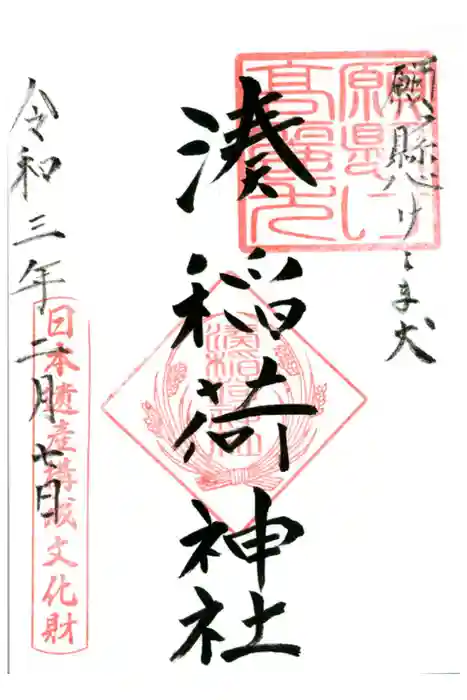 願懸けこま犬
願懸け高麗犬
湊稲荷神社
令和三年二月七日
日本遺産構成文化財